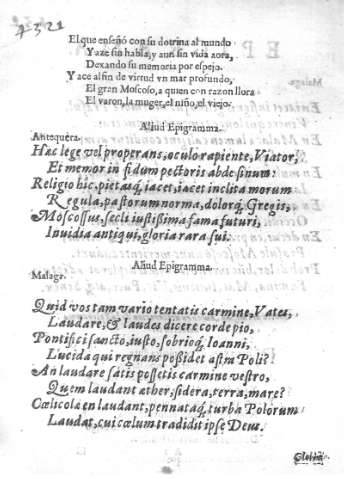 7321
El que enseñó con su dotrina al mundo
Yaze sin habla, y aun sin vida aora,
Dexando su memoria por espejo.
Yace al fin de virtud vn mar profundo,
El gran Moscoso, a quien con razon llora
El varon, la muger, el niño, el viejo.
Aliud Epigramma.
Antequera.
Hac lege vel properans, oculo rapiente, Viator,
Et memor in fidum pectoris abde sinum:
Religio hic, pietasq́, iacet, iacet inclita morum
Regula, pastorum norma, dolorq́, Gregis,
Moscossus, secli iustissima fama futuri,
Inuidia antiqui, gloria rara sui.
Aliud Epigramma.
Malaga.
Quid vos tam vario tentatis carmine, Vates,
Laudare, & laudes dicere corde pio,
Pontifici sancto, iusto, sobrioq́, Ioanni,
Lucida qui regnans possidet astra Poli?
An laudare satis possetis carmine vestro,
Quem laudant æther, sidera, terra, mare?
Cœlicolæ en laudant, pennataq́, turba Polorum
Laudat, cui cœlum tradidit ipse Deus.